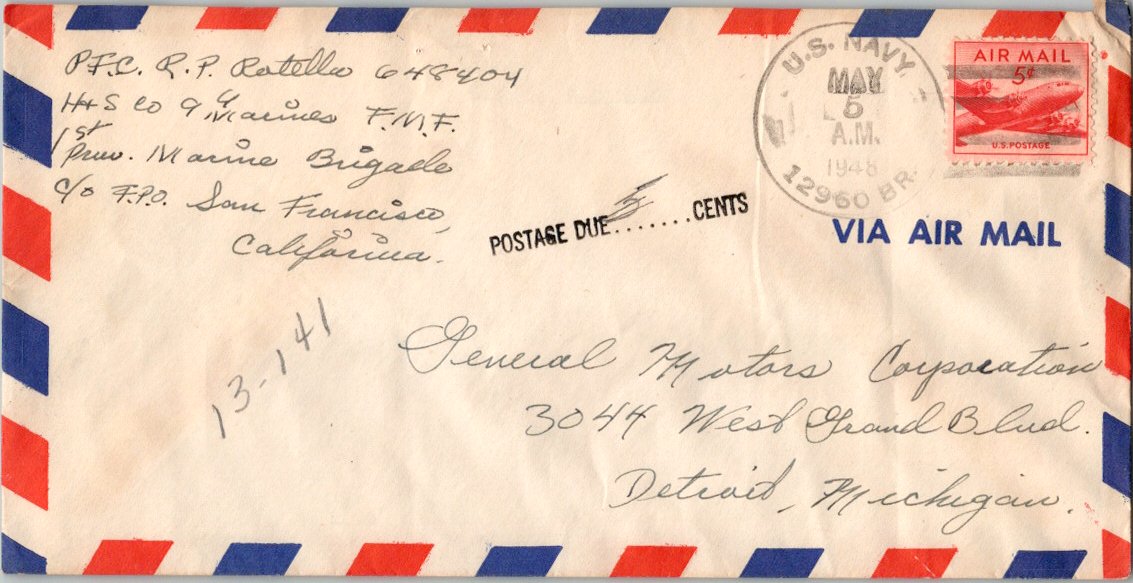 P.F.C. R.P. Rotella 648404
H+S Co 9th Marines F.M.F.
1st Prov. Marine Brigade
c/o F.P.O. San Francisco,
California.
U.S. NAVY
MAY
5
A.M.
1948
12960 BR.
AIR MAIL
5¢
U.S. POSTAGE
POSTAGE DUE 5 .......CENTS
VIA AIR MAIL
13-141
General Motors Corporation
3044 West Grand Blvd.
Detroit, Michigan.